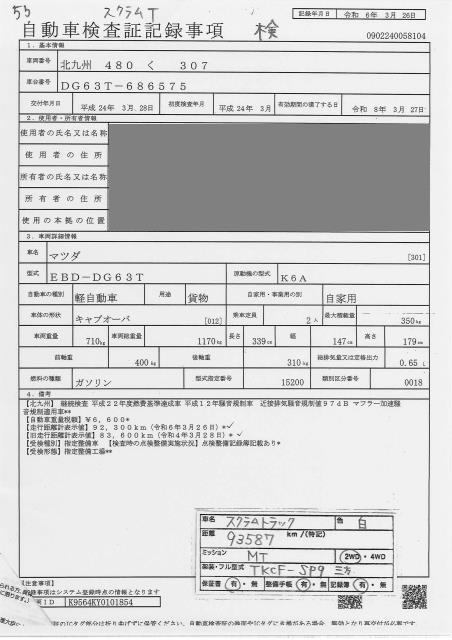 55 スクラムT
記録年月日 令和 6年 3月 26日
自動車検査証記録事項 検
0902240058104
1．基本情報
車両番号 北九州 480 く 307
車台番号 DG63T-686575
交付年月日 平成 24年 3月 28日 初度検査年月 平成 24年 3月 有効期間の満了する日 令和 8年 3月 27日
2．使用者・所有者情報
使用者の氏名又は名称
使用者の住所
所有者の氏名又は名称
所有者の住所
使用の本拠の位置
3．車両詳細情報
車名 マツダ [301]
型式 EBD-DG63T 原動機の型式 K6A
自動車の種別 軽自動車 用途 貨物 自家用・事業用の別 自家用
車体の形状 キャブオーバ [012] 乗車定員 2人 最大積載量 350kg
車両重量 710kg 車両総重量 1170kg 長さ 339cm 幅 147cm 高さ 179cm
前軸重 400kg 後軸重 310kg 総排気量又は定格出力 0.65 L
燃料の種類 ガソリン 型式指定番号 15200 類別区分番号 0018
4．備考
【北九州】 継続検査 平成22年度燃費基準達成車 平成12年騒音規制車 近接排気騒音規制値974B マフラー加速騒
音規制適用車**
【自動車重量税額】¥6,600*
【走行距離計表示値】92,300km（令和6年3月26日）*✓
【旧走行距離計表示値】83,600km（令和4年3月28日）*✓
【受検種別】指定整備車 【検査時の点検整備実施状況】点検整備記録簿記載あり*
【受検形態】指定整備工場**
車名 スクラムトラック 色 白
距離 93587 km／(特記)
ミッション MT 2WD・4WD
架装・フル型式 TKCF-SP9 三方
保証書 有・無 整備手帳 有・無 記録簿 有・無
【注意事項】
記録事項はシステム登録時点の情報となります
K9564KY0101854